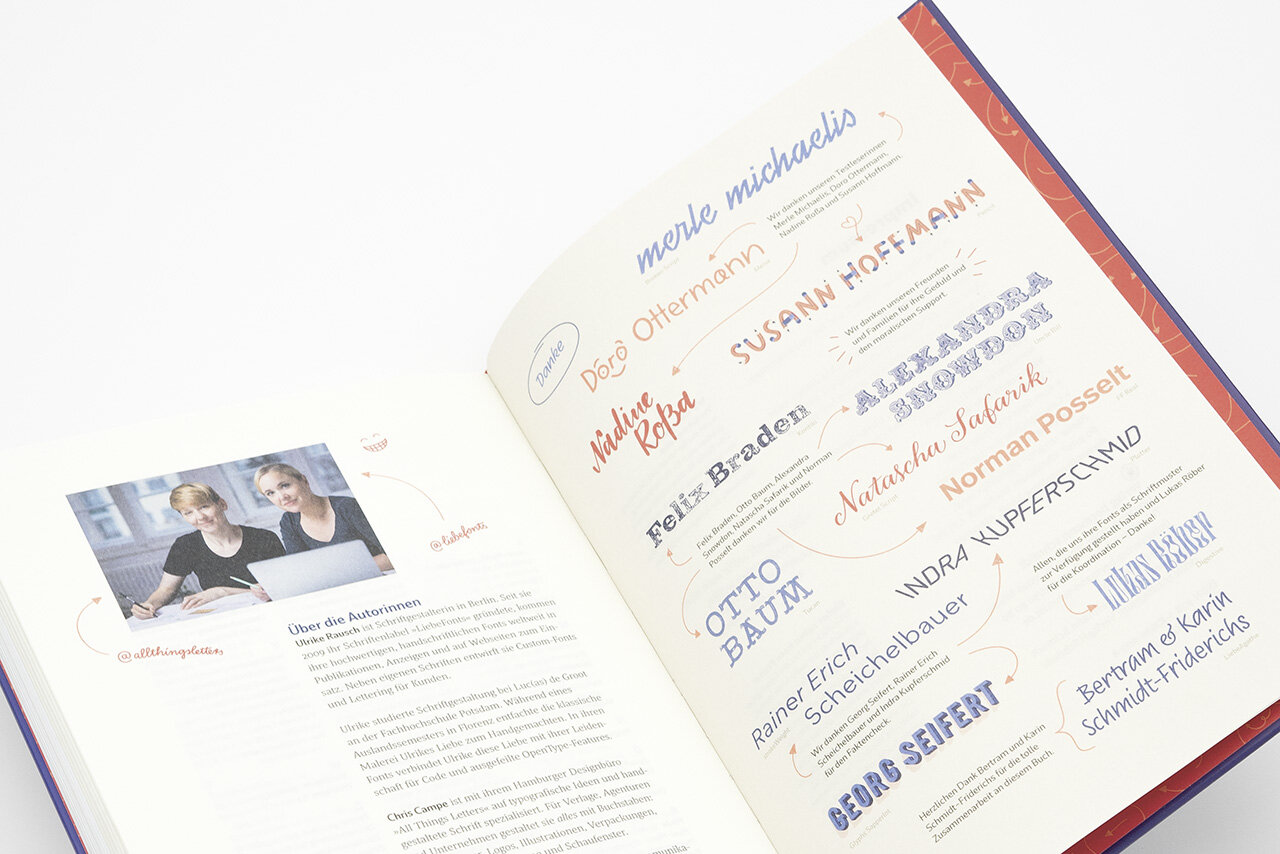 @liebefonts
@allthingsletters
Über die Autorinnen
Ulrike Rausch ist Schriftgestalterin in Berlin. Seit sie
2009 ihr Schriftenlabel »LiebeFonts« gründete, kommen
ihre hochwertigen, handschriftlichen Fonts weltweit in
Publikationen, Anzeigen und auf Webseiten zum Ein-
satz. Neben eigenen Schriften entwirft sie Custom-Fonts
und Lettering für Kunden.
Ulrike studierte Schriftgestaltung bei Luc(as) de Groot
an der Fachhochschule Potsdam. Während eines
Auslandssemesters in Florenz entfachte die klassische
Malerei Ulrikes Liebe zum Handgemachten. In ihren
Fonts verbindet Ulrike diese Liebe mit ihrer Leiden-
schaft für Code und ausgefeilte OpenType-Features.
Chris Campe ist mit ihrem Hamburger Designbüro
»All Things Letters« auf typografische Ideen und hand-
gestaltete Schrift spezialisiert. Für Verlage, Agenturen
und Unternehmen gestaltet sie alles mit Buchstaben:
Logos, Illustrationen, Verpackungen,
und Schaufenster.
Danke
merle michaelis
Wir danken unseren Testleserinnen
Merle Michaelis, Doro Ottermann,
Nadine Roßa und Susann Hoffmann
Doro Ottermann
SUSANN HOFFMANN
Nadine
Roßa
Wir danken unseren Freunden
und Familien für ihre Geduld und
den moralischen Support.
ALEXANDRA
SNOWDON
Felix Braden
Felix Braden, Otto Baum, Alexandra
Snowdon, Natascha Safarik und Norman
Posselt danken wir für die Bilder.
Natascha Safarik
Norman Posselt
FF Real
OTTO
BAUM
Tucan
INDRA KUPFERSCHMID
Platter
Allen, die uns ihre Fonts als Schriftmuster
zur Verfügung gestellt haben und Lukas Röber
für die Koordination – Danke!
Lukas Röber
Digestive
Rainer Erich
Scheichelbauer
Wir danken Georg Seifert, Rainer Erich
Scheichelbauer und Indra Kupferschmid
für den Faktencheck.
GEORG SEIFERT
Bertram & Karin
Schmidt-Friderichs
LiebeAgathe
Herzlichen Dank Bertram und Karin
Schmidt-Friderichs für die tolle
Zusammenarbeit an diesem Buch.